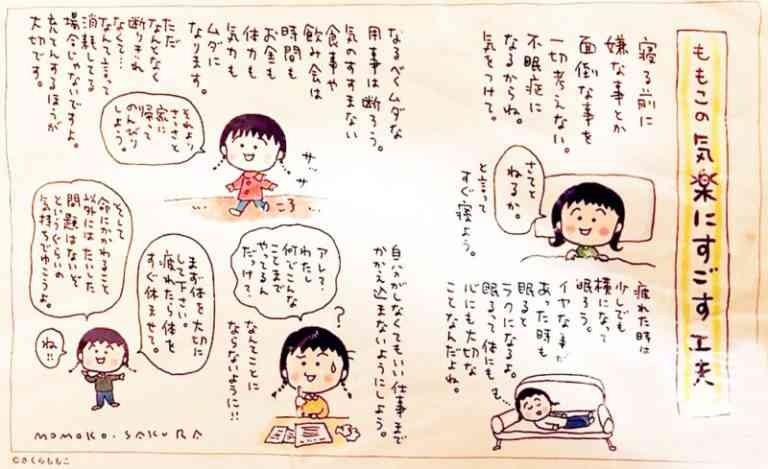 ももこの気楽にすごす工夫
寝る前に
嫌な事とか
面倒な事を
一切考えない。
不眠症に
なるからね。
気をつけて。
さてと
ねるか。
と言って
すぐ寝よう。
疲れた時は
少しでも
横になって
眠ろう。
イヤな事が
あった時も
眠ると
ラクになるよ。
眠るって体にも
心にも大切な
ことなんだよね。
なるべくムダな
用事は断ろう。
気のすすまない
食事や
飲み会は
時間も
お金も
体力も
気力も
ムダに
なります。
ただ
なんとなく
断りきれ
なくて…
なんて言って
消耗してる
場合じゃないですよ。
充てんするほうが
大切です。
それより
さっさと
家に
帰って
のんびり
しよう。
サッ
サッ
自分がしなくてもいい仕事まで
かかえ込まないようにしよう。
アレ?
わたし
何でこんな
ことまで
やってるん
だっけ?
?
なんてことに
ならないように!!
まず体を大切に
して下さい。
疲れたら体を
すぐ休ませて。
そして
命にかかわること
以外にはたいした
問題はないぞ
というぐらいの
気持ちでゆこうよ。
ね!!
MOMOKO.SAKURA
©さくらももこ